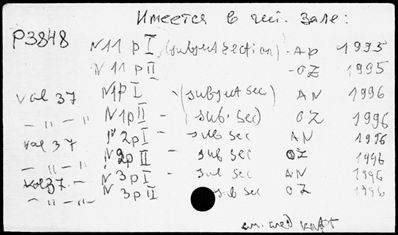 Имеется в чит. зале:
P3848 N11 p I (subject section) - AP 1995
N11 p II - OZ 1995
Vol 37 N1p I - (subject sec) AN 1996
- " - " - N1p II - (sub. sec) OZ 1996
Vol 37 N2p I - sub sec AN 1996
- " - " - N2p II - sub sec OZ 1996
Vol 37 - N3p I - sub sec AN 1996
- " - " - N3p II sub sec OZ 1996